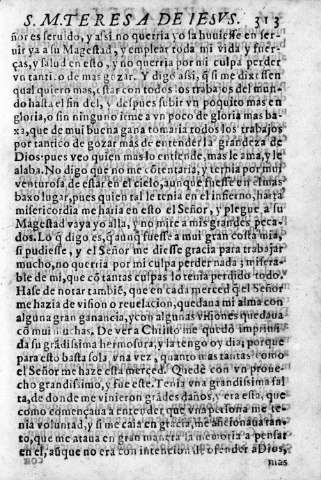 S. M. TERESA DE IESVS. 313
ñor es seruido, y assi no querria yo la huuiesse en ser-
uir ya a su Magestad, y emplear toda mi vida y fuer-
ças, y salud en esto, y no querria por mi culpa perder
vn tantito de mas gozar. Y digo assi, q̃ si me dixessen
qual quiero mas, estar con todos los trabajos del mun-
do hasta el fin del, y despues subir vn poquito mas en
gloria, o sin ninguno irme a vn poco de gloria mas ba-
xa, que de mui buena gana tomaria todos los trabajos
por tantico de gozar más de entender la grandeza de
Dios: pues veo quien mas lo entiende, mas le ama, y le
alaba. No digo que no me cõtentaria, y ternia por mui
venturosa de estar en el cielo, aunque fuesse en el mas
baxo lugar, pues quien tal le tenia en el infierno, harta
misericordia me haria en esto el Señor, y plegue a su
Magestad vaya yo alla, y no mire a mis grandes peca-
dos. Lo q̃ digo es, q̃ aunq̃ fuesse a mui gran costa mia,
si pudiesse, y el Señor me diesse gracia para trabajar
mucho, no querria por mi culpa perder nada; misera-
ble de mi, que cõ tantas culpas lo tenia perdido todo.
Hase de notar tambiẽ, que en cada merced q̃ el Señor
me hazia de vision o reuelacion, quedaua mi alma con
alguna gran ganancia, y con algunas visiones quedaua
cõ mui muchas. De ver a Christo me quedò imprimi
da su grãdissima hermosura, y la tengo oy dia; porque
para esto basta sola vna vez, quanto mas tantas como
el Señor me haze esta merced. Quedè con vn proue-
cho grandissimo, y fue este. Tenia vna grandissima fal
ta, de donde me vinieron grãdes daños, y era esta, que
como començaua a entender que vna persona me te-
nia voluntad, y si me caia en gracia, me aficionaua tan-
to, que me ataua en gran manera la memoria a pensar
en el, aũque no era con intencion de ofender a Dios,
mas